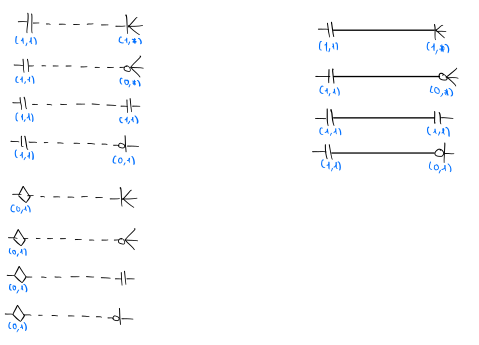 (1,1) (1,*)
(1,1) (0,*)
(1,1) (1,1)
(1,1) (0,1)
(0,1)
(0,1)
(0,1)
(0,1)
(1,1) (1,*)
(1,1) (0,*)
(1,1) (1,1)
(1,1) (0,1)